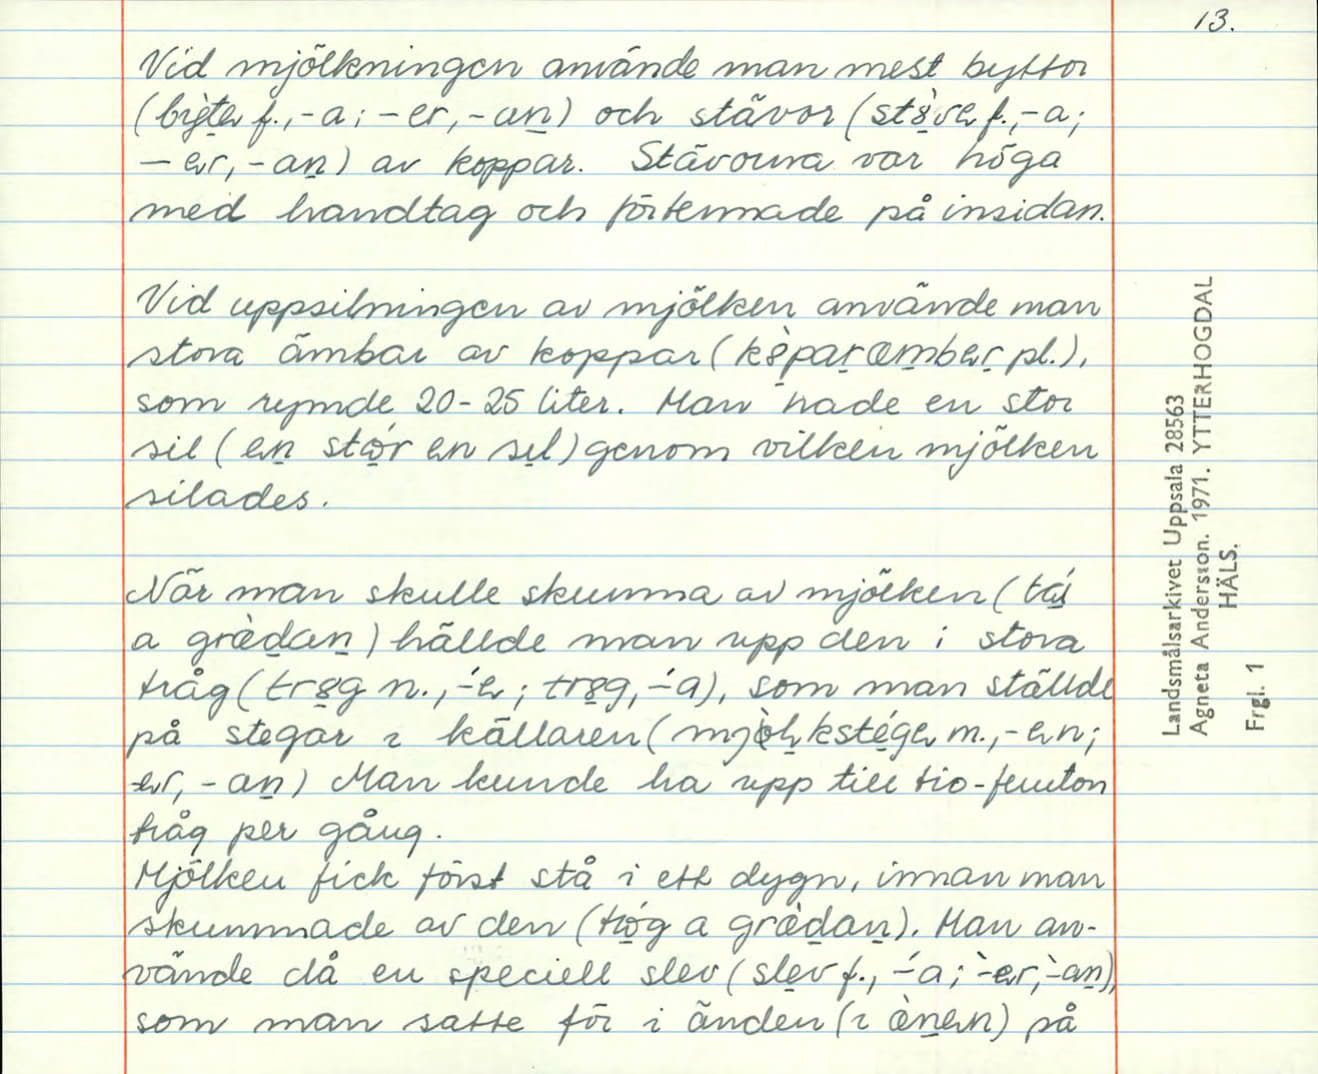 13.
Vid mjölkningen använde man mest byttor
(bỳ̱tɐ f., -a; -er, -aṉ) och stävor (stö̀vɐ f., -a;
-ɐr, -aṉ) av koppar. Stävorna var höga
med handtag och förtennade på insidan.
Vid uppsilningen av mjölken använde man
stora ämbar av koppar (kòpaṟ æmbɐṟ pl.),
som rymde 20-25 liter. Man hade en stor
sil (ɐṉ stór ɐn sil) genom vilken mjölken
silades.
När man skulle skumma av mjölken (tá
a græ̀ḏaṉ) hällde man upp den i stora
tråg (trog n., -́ɐ; trog, -́a), som man ställde
på stegar i källaren (mjòlkstégɐ m., -ɐn;
-ɐr, -aṉ) Man kunde ha upp till tio-femton
tråg per gång.
Mjölken fick först stå i ett dygn, innan man
skummade av den (tóg a græ̀ḏaṉ). Man an-
vände då en speciell slev (slev f., -́a; -̀ɐr, -̀aṉ),
som man satte för i änden (i æ̀ṉɐn) på
Landsmålsarkivet Uppsala 28563
Agneta Andersson. 1971. YTTERHOGDAL
HÄLS.
Frgl. 1